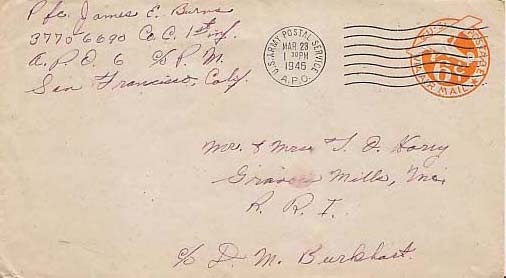 Pfc. James E. Burns
37706690 Co. C. 1st Inf.
A.P.O. 6 c/o P.M.
San Francisco, Calif.
U.S. ARMY POSTAL SERVICE
MAR 28
1 PM
1945
A.P.O.
U.S. POSTAGE
6¢
VIA AIR MAIL
Mr. & Mrs. T. D. Harry
Mills,
R. R. 1.
c/o D. M. Burkhart.